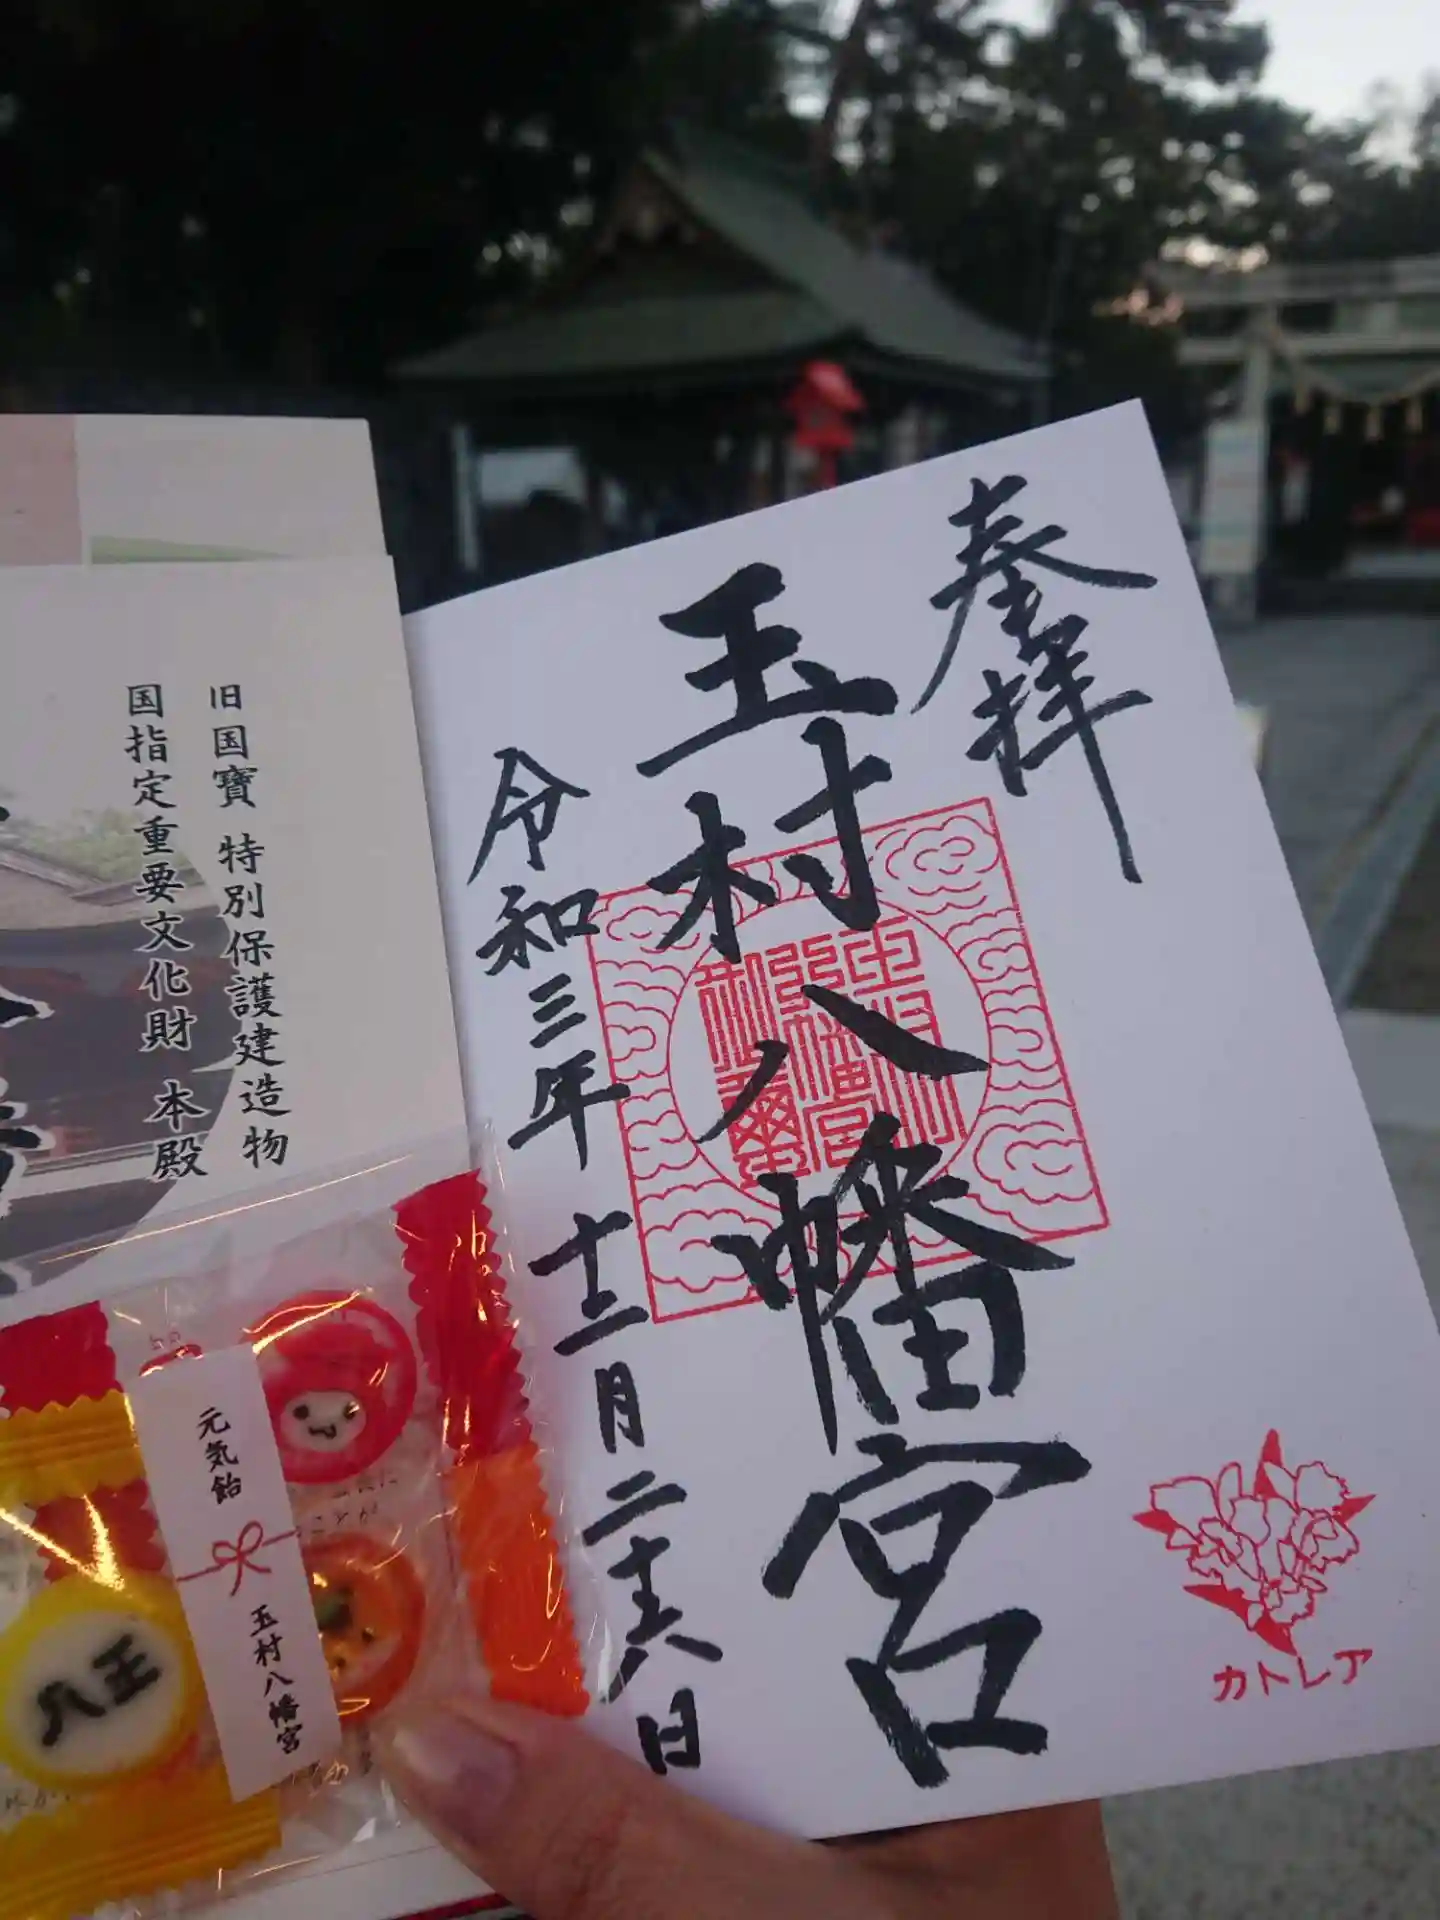 奉拝
玉村八幡宮
令和三年 十二月 二十六日
カトレア
旧国寶 特別保護建造物
国指定重要文化財 本殿
元気飴
玉村八幡宮
八王